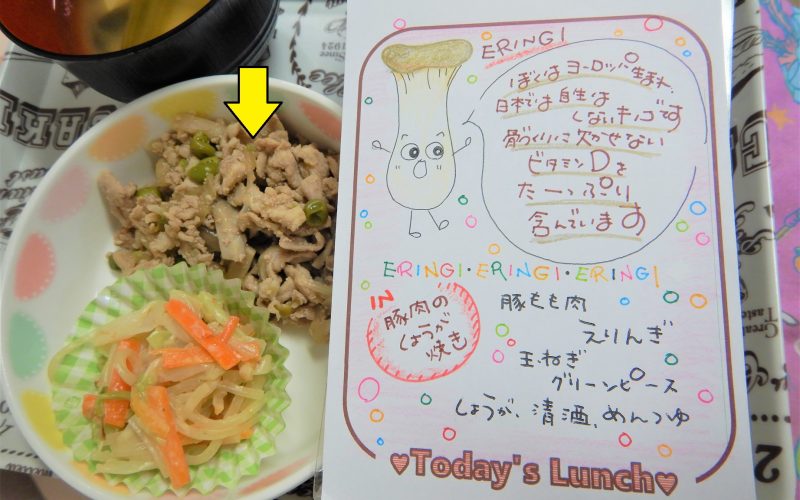 ERINGI
ぼくはヨーロッパ生まれ、
日本では自生は
しないキノコです
骨づくりに欠かせない
ビタミンDを
たーっぷり
含んでいます
ERINGI・ERINGI・ERINGI
IN
豚肉の
しょうが
焼き
豚もも肉
えりんぎ
玉ねぎ
グリーンピース
しょうが、清酒、めんつゆ
♥Today's Lunch♥